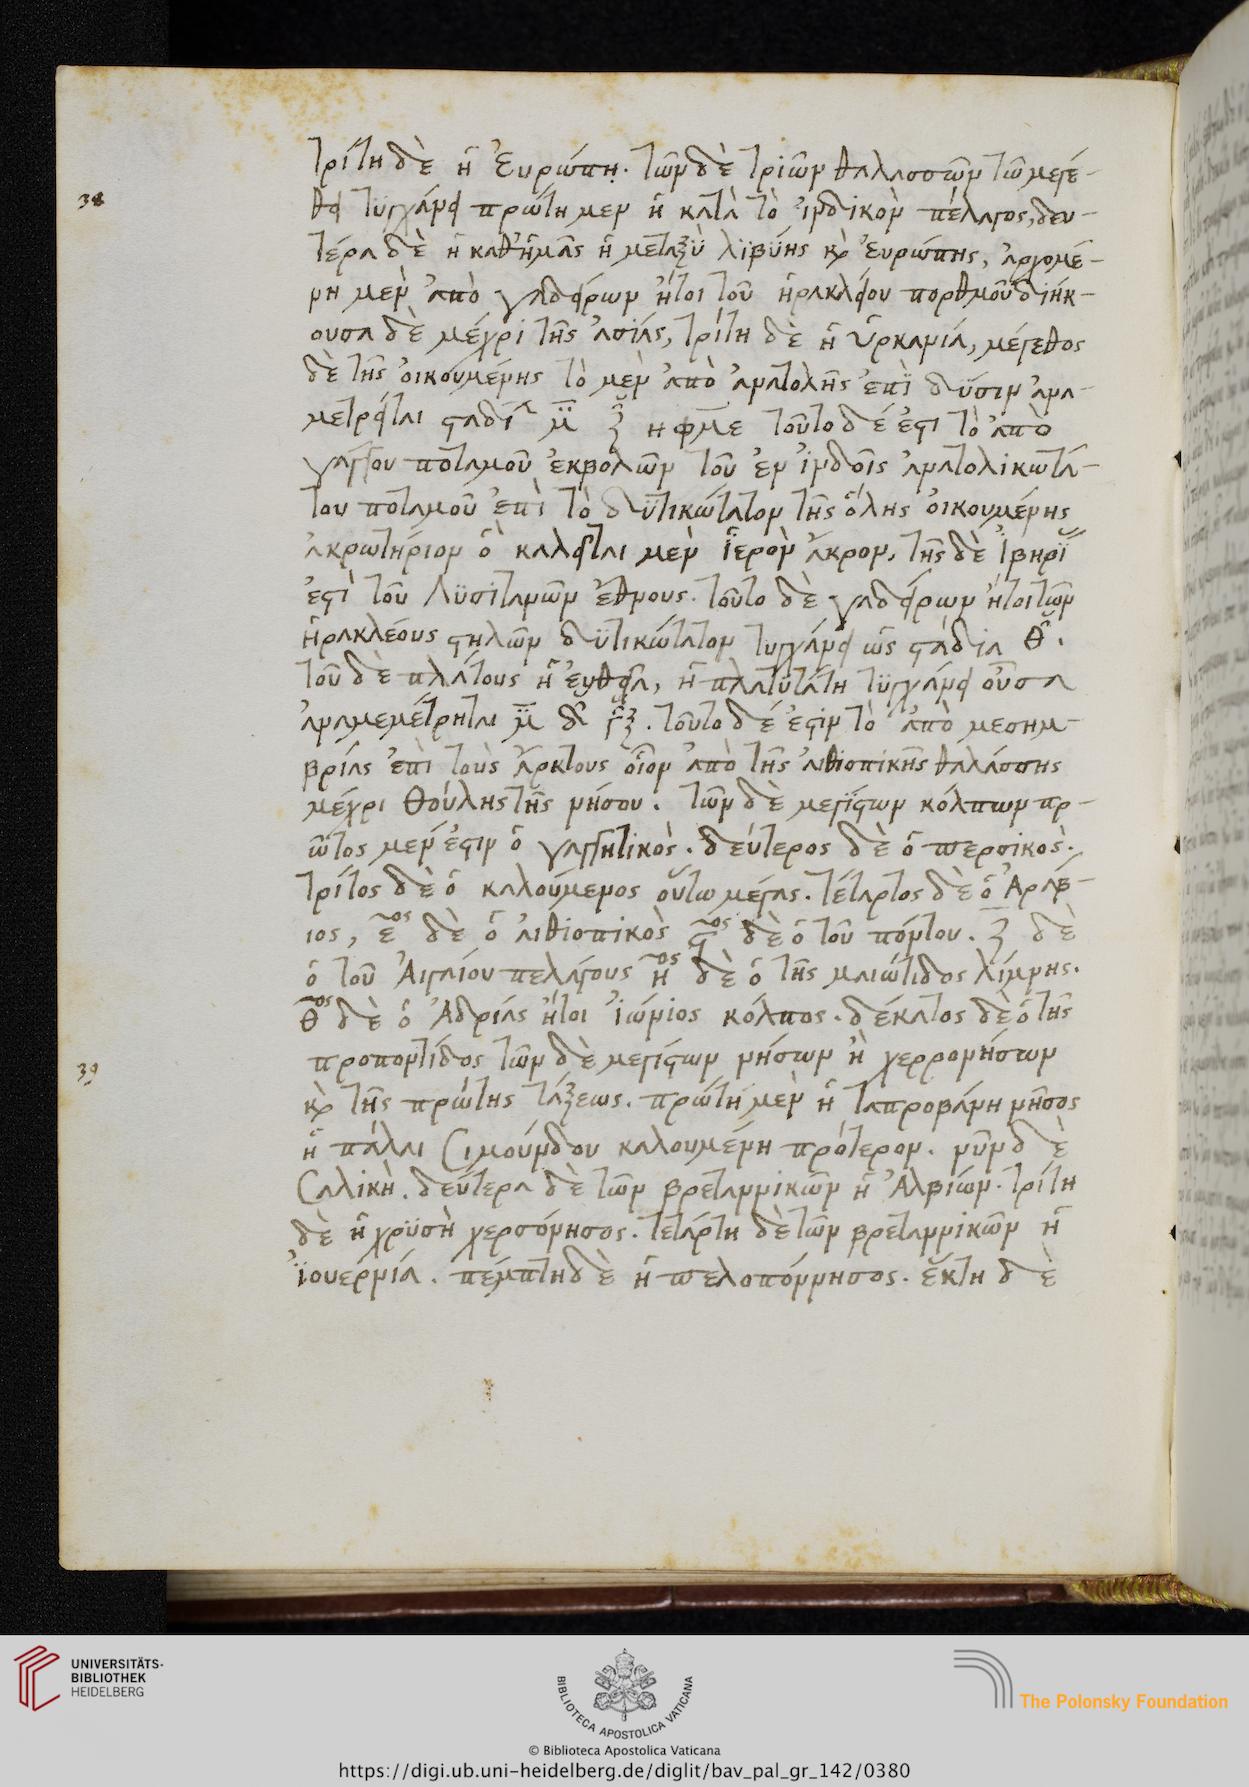 τρίτη δὲ ἡ Ἐυρώπη. τῶν δὲ τριῶν θαλασσῶν τῶ μεγέ-
38
θει τϋγχάνει πρώτη μεν ἡ κατὰ τὸ ἰνδικὸν πέλαγος, δευ-
τέρα δὲ ἡ καθ' ἡμᾶς ἡ μεταξὺ λϊβύης κὶ ἐυρώπης, ἀρχομέ-
νη μεν ἀπὸ γαδείρων ἤτοι τοῦ ἡρακλείου πορθμοῦ διήκ-
ουσα δὲ μέχρι τῆς ἀσίας, τρίτη δὲ ἡ ὑρκανία, μέγεθος
δὲ τῆς ὀικουμένης τὸ μὲν ἀπὸ ἀνατολῆς ἐπῒ δύσιν ἀνα-
μετρεῖται ϛαδί Μ ζ ηφμε τοῦτο δέ ἐϛι τὸ ἀπὸ
γαγγου ποταμοῦ ἐκβολῶν τοῦ ἐν ἰνδοῖς ἀνατολικωτά-
του ποταμοῦ ἐπὶ τὸ δϋτικώτατον τῆς ὅλης ὀικουμένης
ἀκρωτήριον ὃ καλεῖται μὲν ἱερὸν ἄκρον, τῆς δὲ ἰβηρί
ἐϛὶ τοῦ Λϋσϊτανῶν ἔθνους. τοῦτο δὲ γαδείρων ἤτοι τῶν
ἡρακλέους ϛηλῶν δϋτικώτατον τυγχάνει ὡς ϛάδια θ.
τοῦ δὲ πλάτους ἡ ἐυθεῖα, ἡ πλατϋτάτη τϋγχάνει οὖσα
ἀναμεμέτρηται Μ δ γξ. τοῦτο δέ ἐϛιν τὸ ἀπὸ μεσημ-
βρίας ἐπὶ τοὺς ἄρκτους οἷον ἀπὸ τῆς ἀιθιοπικῆς θαλάσσης
μέχρι Θούλης τῆς νήσου. τῶν δὲ μεγίϛων κόλπων πρ-
ῶτος μέν ἐϛιν ὁ γαγγητικὸς. δεύτερος δὲ ὁ περσικὸς.
τρίτος δὲ ὁ καλούμενος οὕτω μέγας. τέταρτος δὲ ὁ Ἀράβ-
ιος, ε̄ος δὲ ὁ ἀιθιοπικὸς ϛ̄ος δὲ ὁ τοῦ πόντου. ζ̄ δὲ
ὁ τοῦ Ἀιγαίου πελάγους η̄ος δὲ ὁ τῆς μαιώτιδος λίμνης.
θ̄ος δὲ ὁ Ἀδρίας ἤτοι ἰώνιος κόλπος. δέκατος δὲ ὁ τῆς
39
προποντίδος τῶν δὲ μεγίϛων νήσων ἢ χερρονήσων
κὶ τῆς πρώτης τάξεως. πρώτη μὲν ἡ Ταπροβάνη νῆσος
ἡ πάλαι Σιμούνδου καλουμένη πρότερον. νῦν δὲ
Σαλικὴ. δεύτερα δὲ τῶν βρεταννικῶν ἡ Ἀλβιών. τρίτη
δὲ ἡ χρϋσὴ χερσόνησος. τετάρτη δὲ τῶν βρεταννικῶν ἡ
ἰουερνία. πέμπτη δὲ ἡ πελοπόννησος. ἕκτη δὲ
UNIVERSITÄTS-
BIBLIOTHEK
HEIDELBERG
BIBLIOTECA APOSTOLICA VATICANA
The Polonsky Foundation
© Biblioteca Apostolica Vaticana
https://digi.ub.uni-heidelberg.de/diglit/bav_pal_gr_142/0380